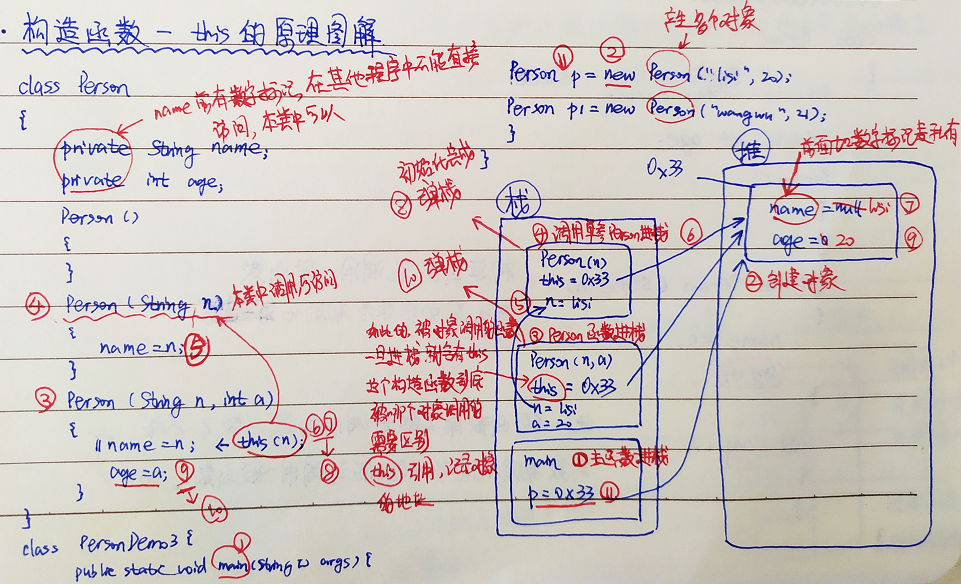 · 构造函数 — this 的原理图解
class Person
{
name前有数字标记, 在其他程序中不能直接
访问, 本类中可以
private String name;
private int age;
Person ()
{
}
④ Person (String n) 本类中调用可访问
{
name = n; ⑤
}
③ Person (String n, int a)
{
// name = n; ← this(n); ⑥⑦
⑧
age = a; ⑨
⑩
}
}
class PersonDemo3 {
①
public static void main(String[] args) {
产生多个对象
⑪ ②
Person p = new Person("lisi", 20);
Person p1 = new Person("wangwu", 21);
}
}
初始化完成
⑧ 弹栈
⑩ 弹栈
一旦进栈就会有this
这个构造函数到底
被哪个对象调用的
需要区别
this 引用, 记录对象
的地址
栈
④ 调用单参Person进栈 ⑥
Person(n)
this = 0x33
⑤ n = lisi
③ Person函数进栈
Person(n,a)
this = 0x33
n = lisi
a = 20
main ①主函数进栈
p = 0x33 ⑪
堆
前面的数字标记表私有
0x33
name = null lisi ⑦
age = 0 20 ⑨
② 创建对象